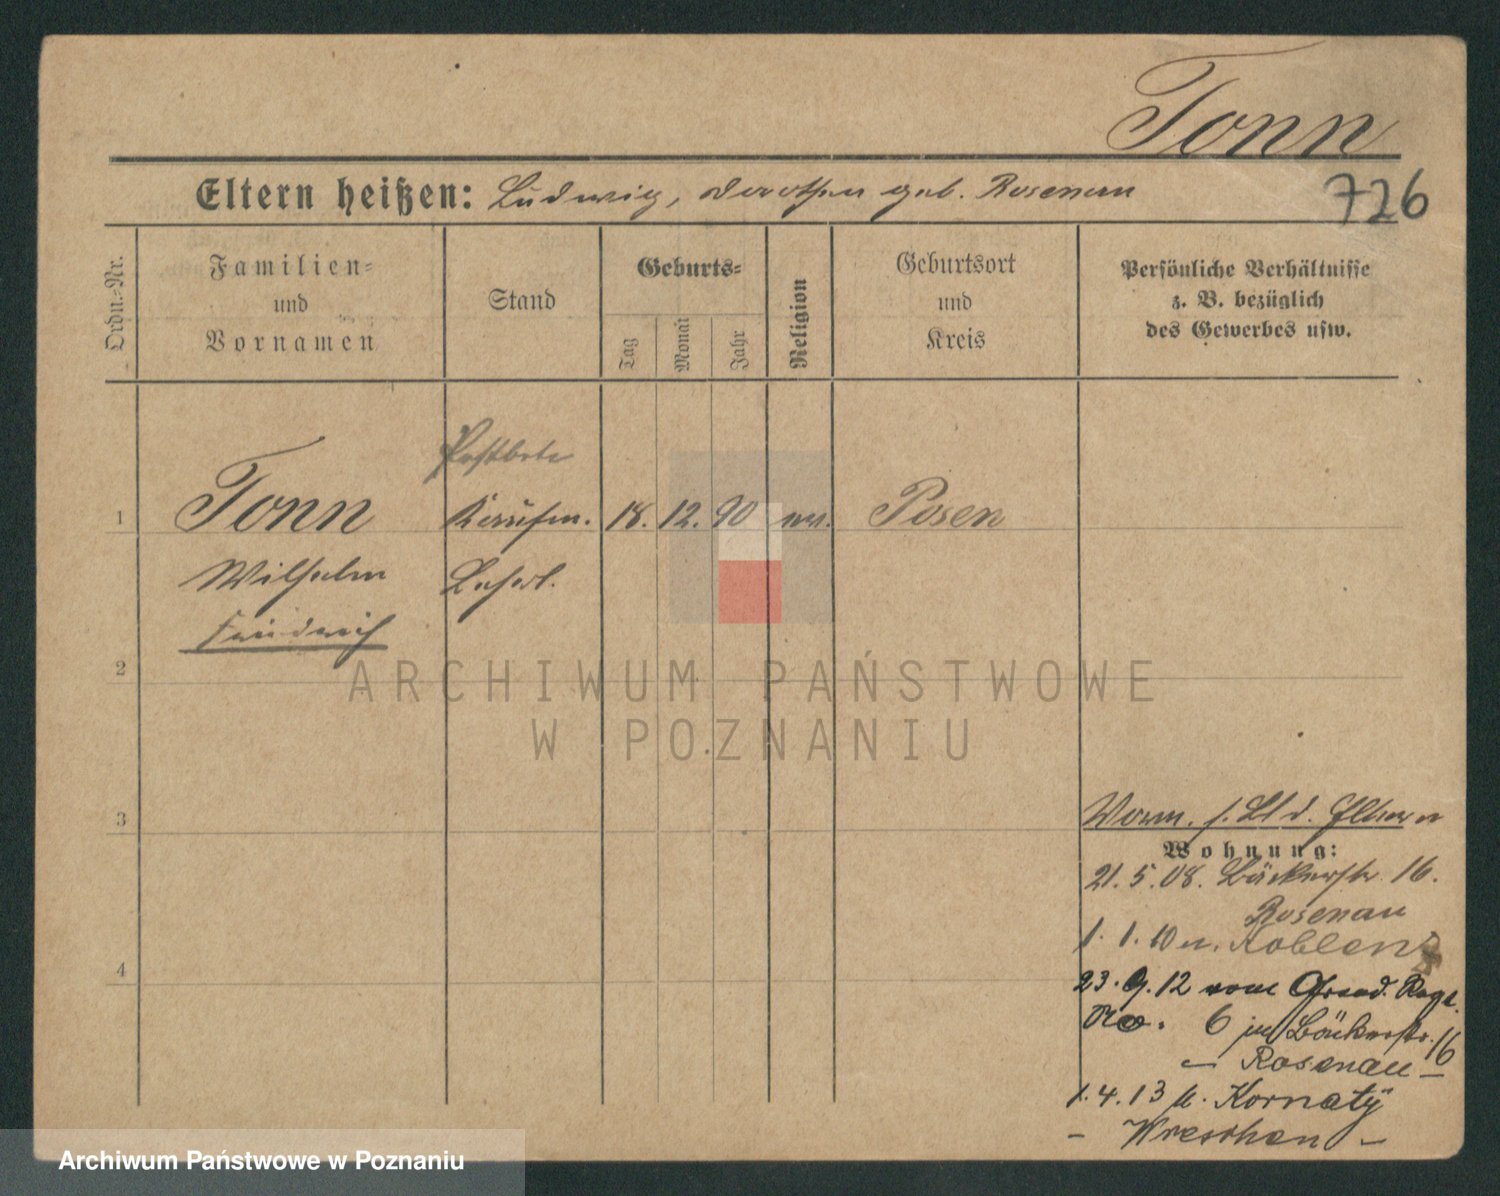 Tonn
Eltern heißen: Ludwig, Dorothea geb. Rosenau
726
Ordn.-Nr.
Familien- und Vornamen
Stand
Geburts-
Tag
Monat
Jahr
Religion
Geburtsort und Kreis
Persönliche Verhältnisse
z. B. bezüglich
des Gewerbes usw.
Postbote
1 Tonn Kaufm. 18. 12. 90 ev. Posen
Wilhelm Lehrl.
Friedrich
2
ARCHIWUM PAŃSTWOWE
W POZNANIU
3
Wohnung:
21. 5. 08. Bäckerstr. 16.
Rosenau
1. 1. 10 n. Koblenz
4
23. 9. 12 vom Grend. Regt.
No. 6 in Bäckerstr. 16
— Rosenau —
1. 4. 13 n. Kornaty
— Wreschen —
Archiwum Państwowe w Poznaniu